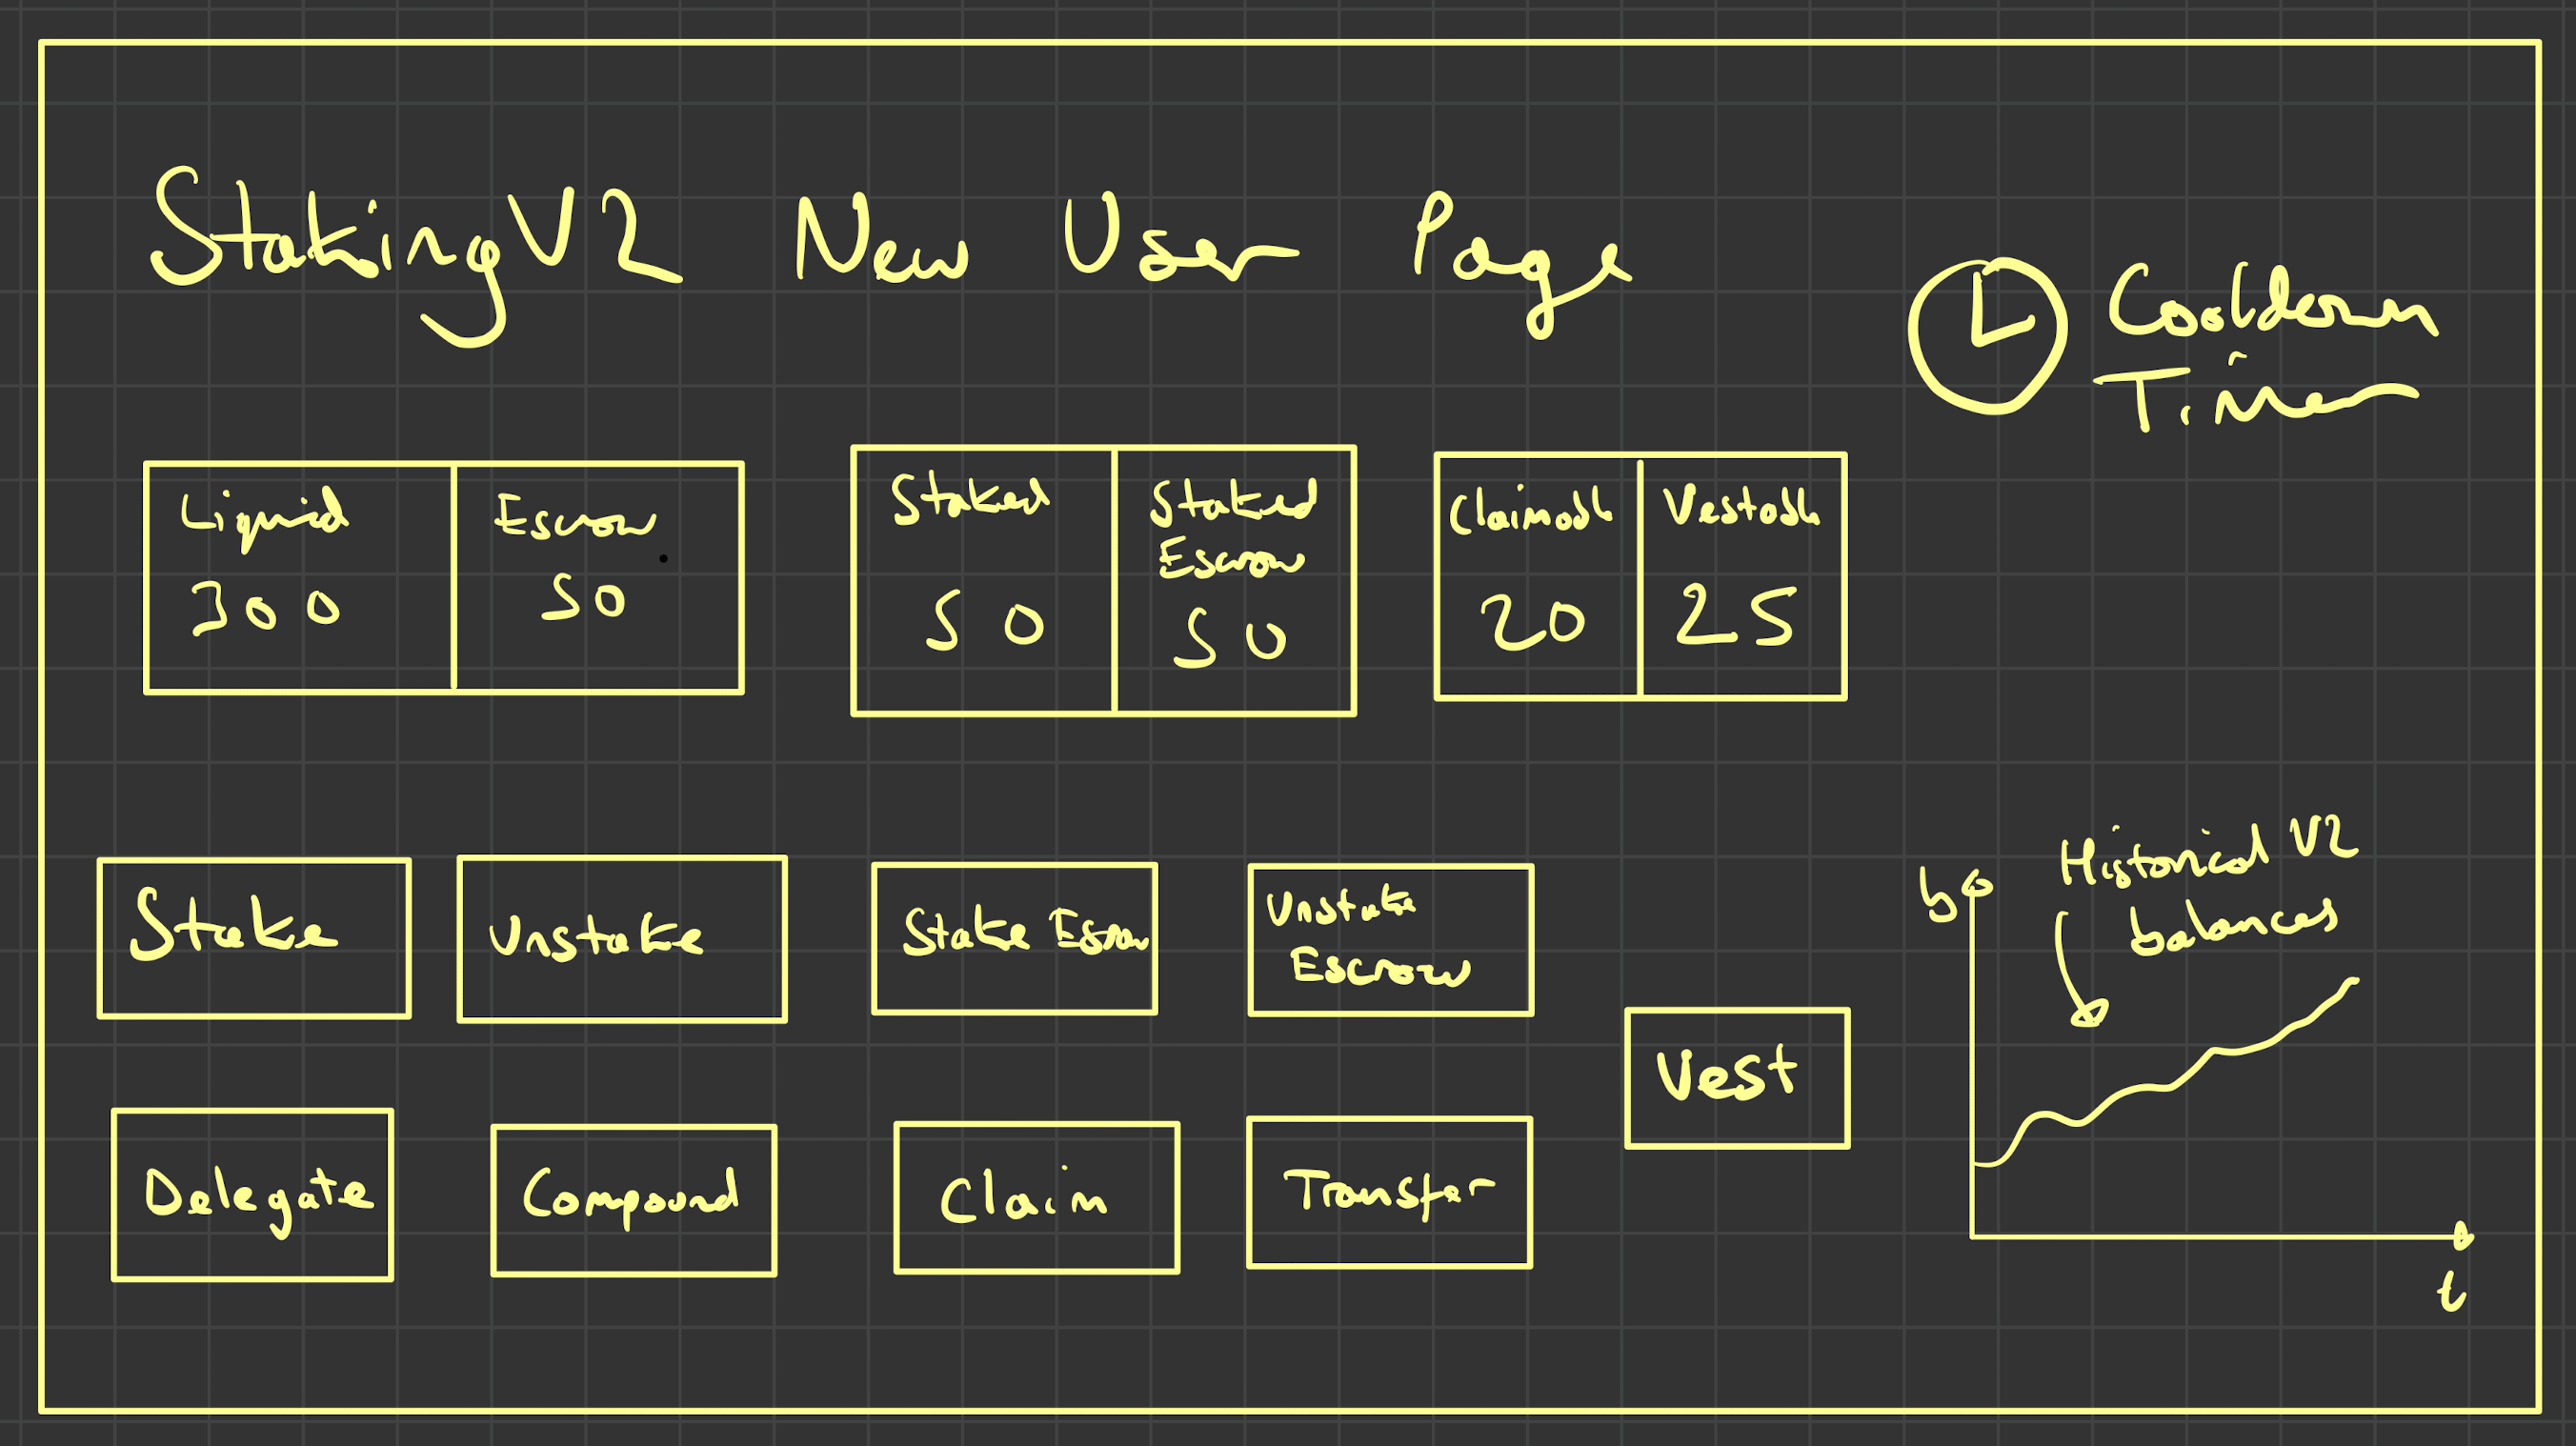 StakingV2 New User Page
Cooldown
Timer
Liquid
300
Escrow
50
Staked
50
Staked
Escrow
50
Claimable
20
Vestable
25
Stake
Unstake
Stake Escrow
Unstake
Escrow
Vest
Delegate
Compound
Claim
Transfer
Historical V2
balances
b
t